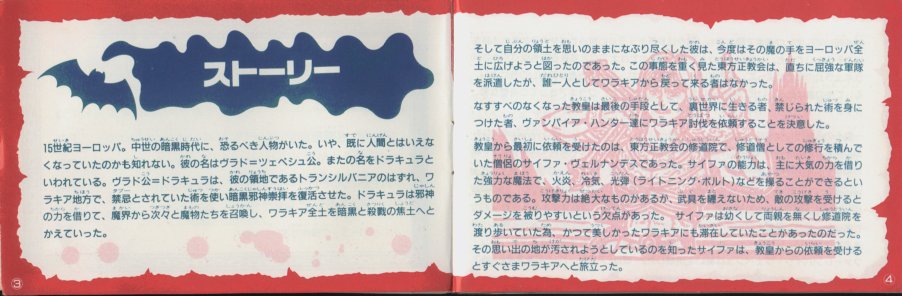 ストーリー
15世紀ヨーロッパ。中世の暗黒時代に、恐るべき人物がいた。いや、既に人間とはいえな
くなっていたのかも知れない。彼の名はヴラド=ツェペシュ公。またの名をドラキュラと
いわれている。ヴラド公=ドラキュラは、彼の領地であるトランシルバニアのはずれ、ワ
ラキア地方で、禁忌とされていた術を使い暗黒邪神崇拝を復活させた。ドラキュラは邪神
の力を借りて、魔界から次々と魔物たちを召喚し、ワラキア全土を暗黒と殺戮の焦土へと
かえていった。
3
そして自分の領土を思いのままになぶり尽くした彼は、今度はその魔の手をヨーロッパ全
土に広げようと図ったのであった。この事態を重く見た東方正教会は、直ちに屈強な軍隊
を派遣したが、誰一人としてワラキアから戻って来る者はなかった。
なすすべのなくなった教皇は最後の手段として、裏世界に生きる者、禁じられた術を身に
つけた者、ヴァンパイア・ハンター達にワラキア討伐を依頼することを決意した。
教皇から最初に依頼を受けたのは、東方正教会の修道院で、修道僧としての修行を積んで
いた僧侶のサイファ・ヴェルナンデスであった。サイファの能力は、主に大気の力を借り
た強力な魔法で、火炎、冷気、光弾(ライトニング・ボルト)などを操ることができるとい
うものである。攻撃力は絶大なものがあるが、武具を纏えないため、敵の攻撃を受けると
ダメージを被りやすいという欠点があった。 サイファは幼くして両親を無くし修道院を
渡り歩いていた為、かつて美しかったワラキアにも滞在していたことがあったのだった。
その思い出の地が汚されようとしているのを知ったサイファは、教皇からの依頼を受ける
とすぐさまワラキアへと旅立った。
4